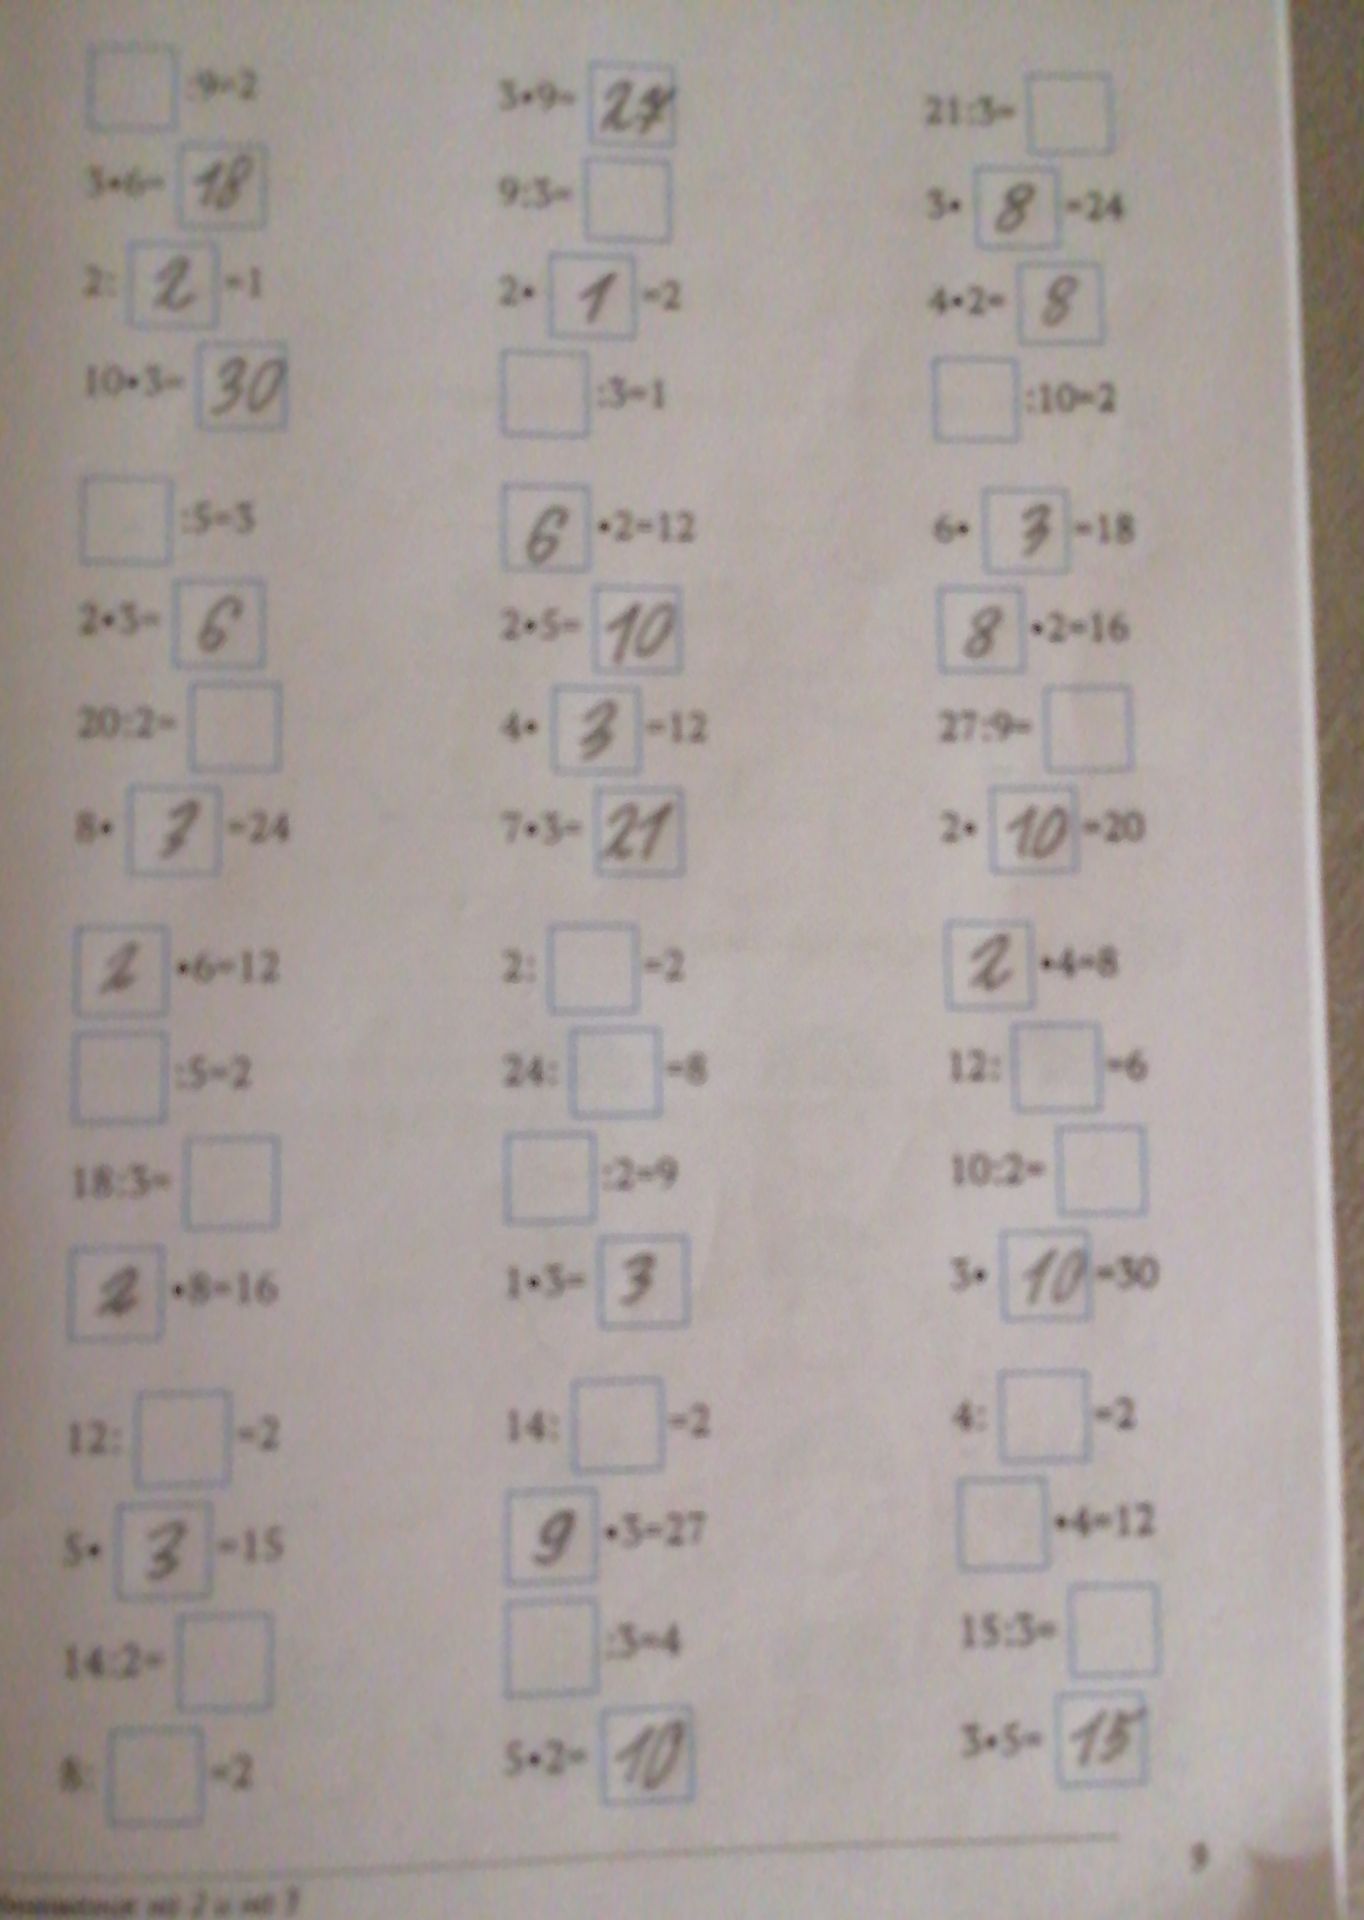 □ :9=2
3•6= 18
2: 2 =1
10•3= 30
□ :5=3
2•3= 6
20:2= □
8• 3 =24
2 •6=12
□ :5=2
18:3= □
2 •8=16
12: □ =2
5• 3 =15
14:2= □
8: □ =2
3•9= 27
9:3= □
2• 1 =2
□ :3=1
6 •2=12
2•5= 10
4• 3 =12
7•3= 21
2: □ =2
24: □ =8
□ :2=9
1•3= 3
14: □ =2
9 •3=27
□ :3=4
5•2= 10
21:3= □
3• 8 =24
4•2= 8
□ :10=2
6• 3 =18
8 •2=16
27:9= □
2• 10 =20
2 •4=8
12: □ =6
10:2= □
3• 10 =30
4: □ =2
□ •4=12
15:3= □
3•5= 15
9
на 2 и на 3